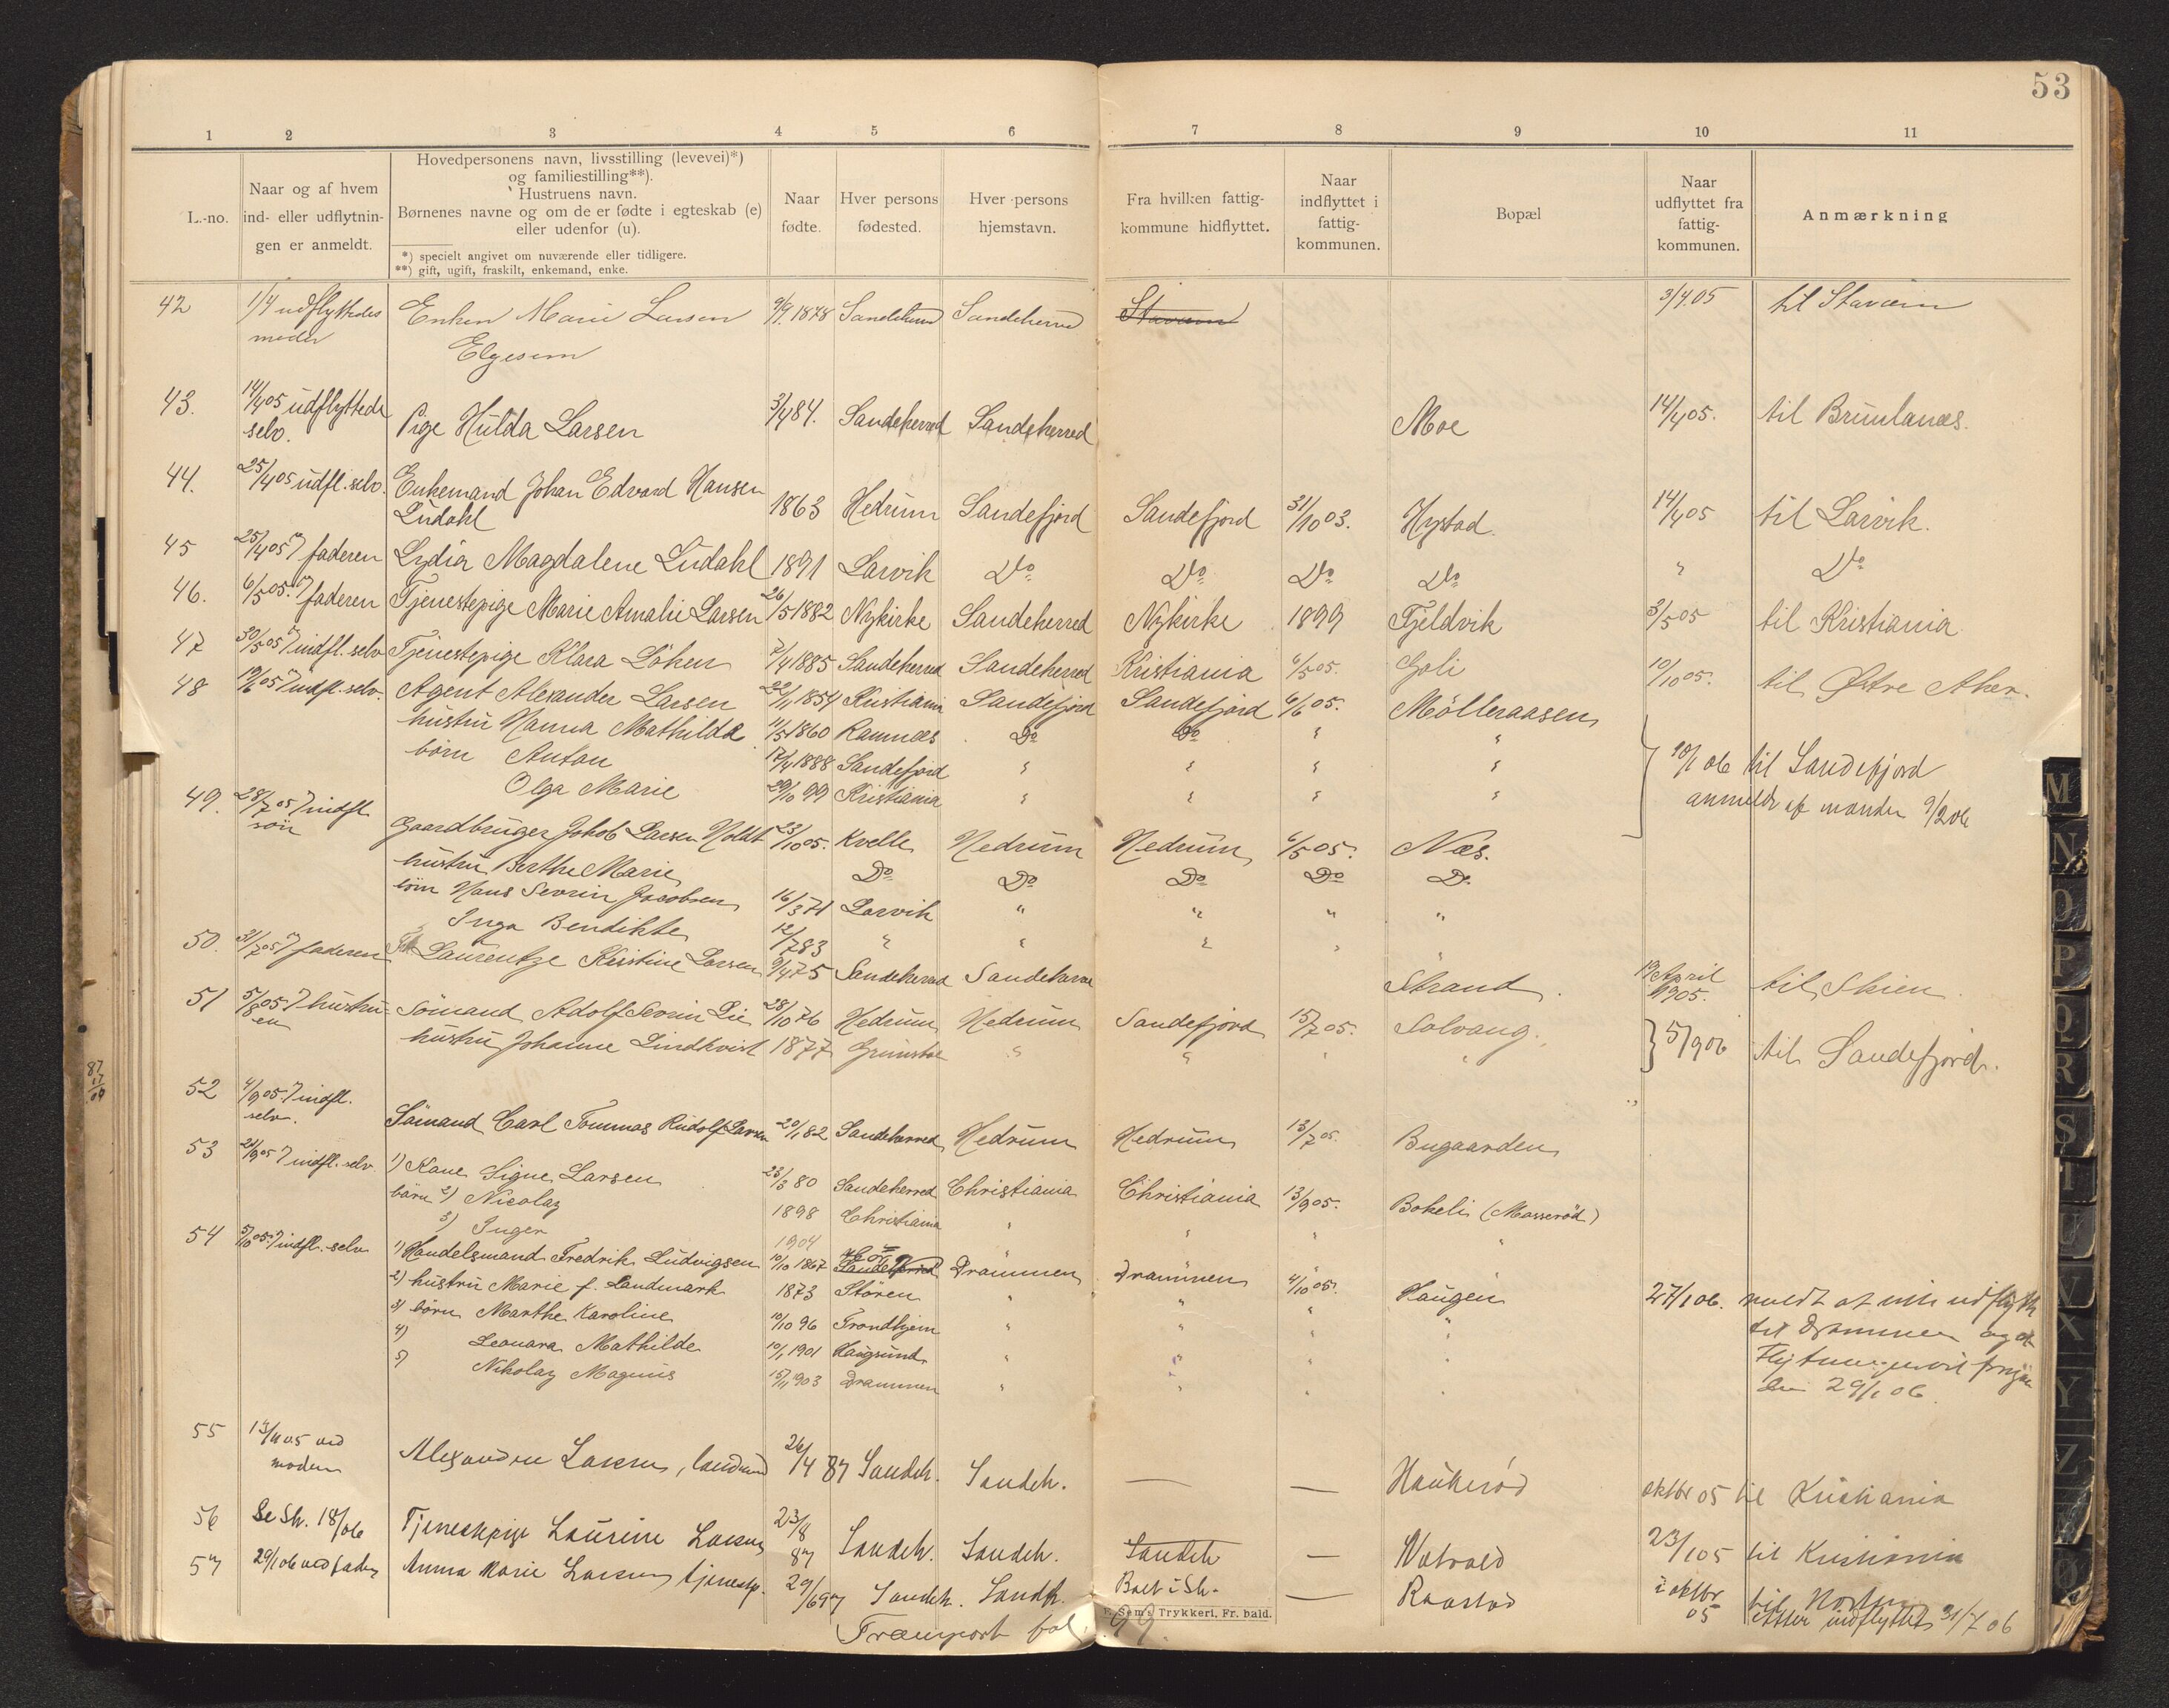 53
1 2 3 4 5 6 7 8 9 10 11
L.-no.
Naar og af hvem
ind- eller udflytnin-
gen er anmeldt.
Hovedpersonens navn, livsstilling (levevei)*)
og familiestilling**).
Hustruens navn.
Børnenes navne og om de er fødte i egteskab (e)
eller udenfor (u).
*) specielt angivet om nuværende eller tidligere.
**) gift, ugift, fraskilt, enkemand, enke.
Naar
fødte.
Hver persons
fødested.
Hver persons
hjemstavn.
Fra hvilken fattig-
kommune hidflyttet.
Naar
indflyttet i
fattig-
kommunen.
Bopæl
Naar
udflyttet fra
fattig-
kommunen.
Anmærkning
42 1/4 udflyttedes Enken Marie Larsen 9/9 1878 Sandeherred Sandeherred Stavern 3/4.05 til Stavern
moder Elgesem
43. 14/4 05 udflyttede Pige Hulda Larsen 3/4 84. Sandeherred Sandeherred Moe 14/4 05. til Brunlanæs.
selv.
44. 25/4 05 udfl. selv. Enkemand Johan Edvard Hansen 1863 Hedrum Sandefjord Sandefjord 31/10 03. Hystad. 14/4 05 til Larvik.
Ludahl
45 25/4 05 " faderen Lydia Magdalene Ludahl 1891 Larvik Do Do Do Do " Do
46. 6/5 05. " faderen Tjenestepige Marie Amalie Larsen 26/5 1882 Nykirke Sandeherred Nykirke 1899 Fjeldvik 3/5 05 til Kristiania
47 30/5 05 " indfl. selv Tjenestepige Klara Löken 7/4 1885 Sandeherred Sandeherred Kristiania 6/5 05. Goli 10/10 05. til Østre Aker.
48 19/6 05 " indfl. selv. Agent Alexander Larsen 22/11 1854 Kristiania Sandefjord Sandefjord 6/6 05. Mölleraasen
hustru Hanna Mathilda 11/5 1860 Ramnæs Do Do " "
börn Anton 17/4 1888 Sandefjord " " " " 10/1 06 til Sandefjord
Olga Marie 29/10 99 Kristiania " " " " anmeldt af manden 9/2 06
49. 28/7 05 " indfl. Gaardbruger Jakob Larsen Holdt 23/10 05. Kvelle Hedrum Hedrum 6/5 05. Næs.
sön hustru Berthe Marie Do Do Do Do D.
börn Hans Sevrin Jacobsen 16/3 71 Larvik " " " "
Inga Bendikte 12/7 83 " " " "
50. 31/7 05 " faderen Laurentze Kristine Larsen 9/4 75 Sandeherred Sandeherred Strand. 19 April 1905. til Skien.
51 5/8 05 " hustru- Sömand Adolf Sevrin Lie 28/10 76 Hedrum Hedrum Sandefjord 15/7 05. Solvang. 5/9 06 til Sandefjord.
en hustru Johanne Lindkvist 1877 " " " "
52 4/9 05 " indfl. Sömand Carl Tommas Rudolf Larsen 20/1 82 Sandeherred Hedrum Hedrum 13/7 05. Bugaarden
selv.
53 21/9 05 " indfl. selv. 1) Kone Signe Larsen 23/3 80 Sandeherred Christiania Christiania 13/9 05. Bokeli (Mosserød)
börn 2) Nicolay 1898 Christiania " " " "
3) Inger 1904 " " " "
54 5/10 05. " indfl. selv 1) Handelsmand Fredrik Ludvigsen 10/10 1867 Sandeherred Drammen Drammen 4/10 05. Haugen 27/1 06. meldt at
2) hustru Marie f. Landmark 1873 Stören " " " " til Drammen
3) börn Marthe Karoline 10/10 96 Trondhjem " " " "
4) Leonara Mathilde 10/1 1901 Haugsund " " " "
5) Nikolay Magnus 15/11 1903 Drammen " " " " 29/1 06.
55 13/11 05 ved Alexandra Larsen, 26/4 87 Sandeh. Sandeh. — — Haukerød oktbr 05 til Kristiania
moderen
56 Se Sh. 18/06 Tjenestepige Laurine Larsen 23/8 87 Sandeh. Sandeh. Sandeh — 23/1 05 til Kristiania
57 29/1 06 ved fader Anna Marie Larsen tjenestep. 29/6 97 Sandeh. Sandh. Boet i Sh. — Raastad i oktbr 05 til
atter indflyttet 31/7 06
E. Sem's Trykkeri, Fr. hald.
Transport fol. 99.
M N O P Q R S T U V X Y Z Æ Ø